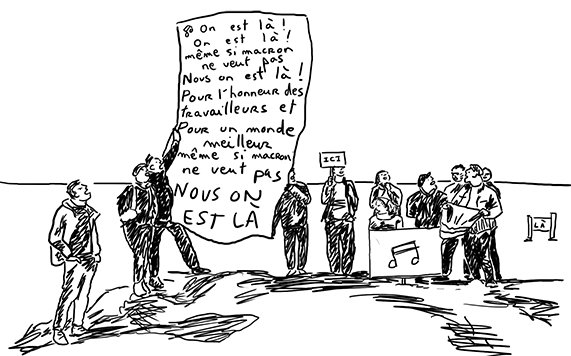 On est là !
On est là !
même si macron
ne veut pas
Nous on est là !
Pour l'honneur des
travailleurs et
Pour un monde
meilleur
même si macron
ne veut pas
NOUS ON
EST LÀ
ICI
LÀ